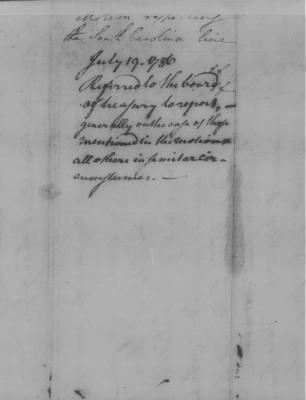 Motion respecting
the South Carolina line
July 19. 1786
Referred to the board
of treasury to report, -
generally on the case of those
mentioned in the motion &
all others in similar cir-
cumstances. -